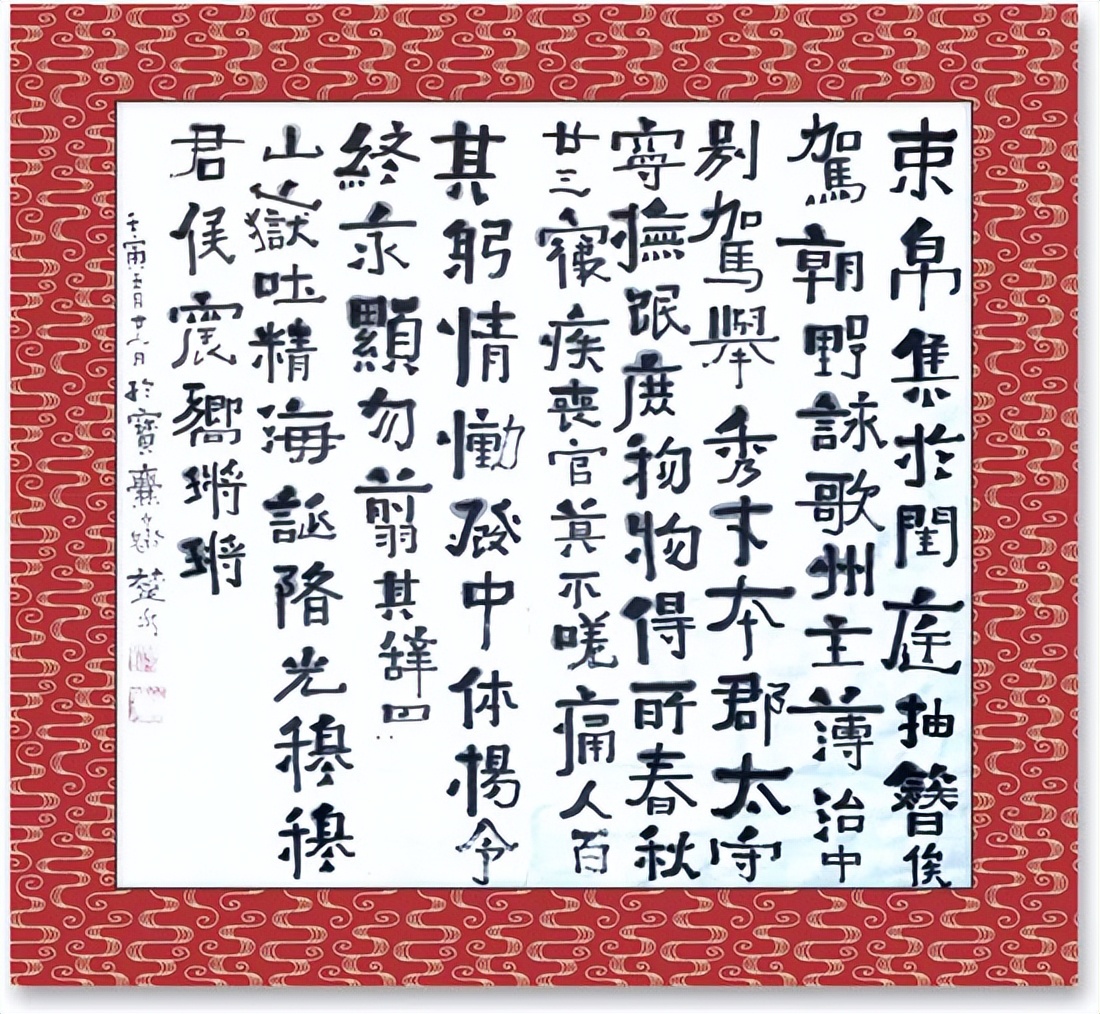 束帛集於閨庭抽簪俟
駕朝野詠歌州主薄治中
別駕舉秀才本郡太守
寧撫氓庶物物得所春秋
廿三寢疾喪官莫不嗟痛人百
其躬情慟發中休楊令
終永顯勿翦其辭曰
山獄吐精海誕陼光穆穆
君侯震嚮鏘鏘
壬寅月廿日於寶爨